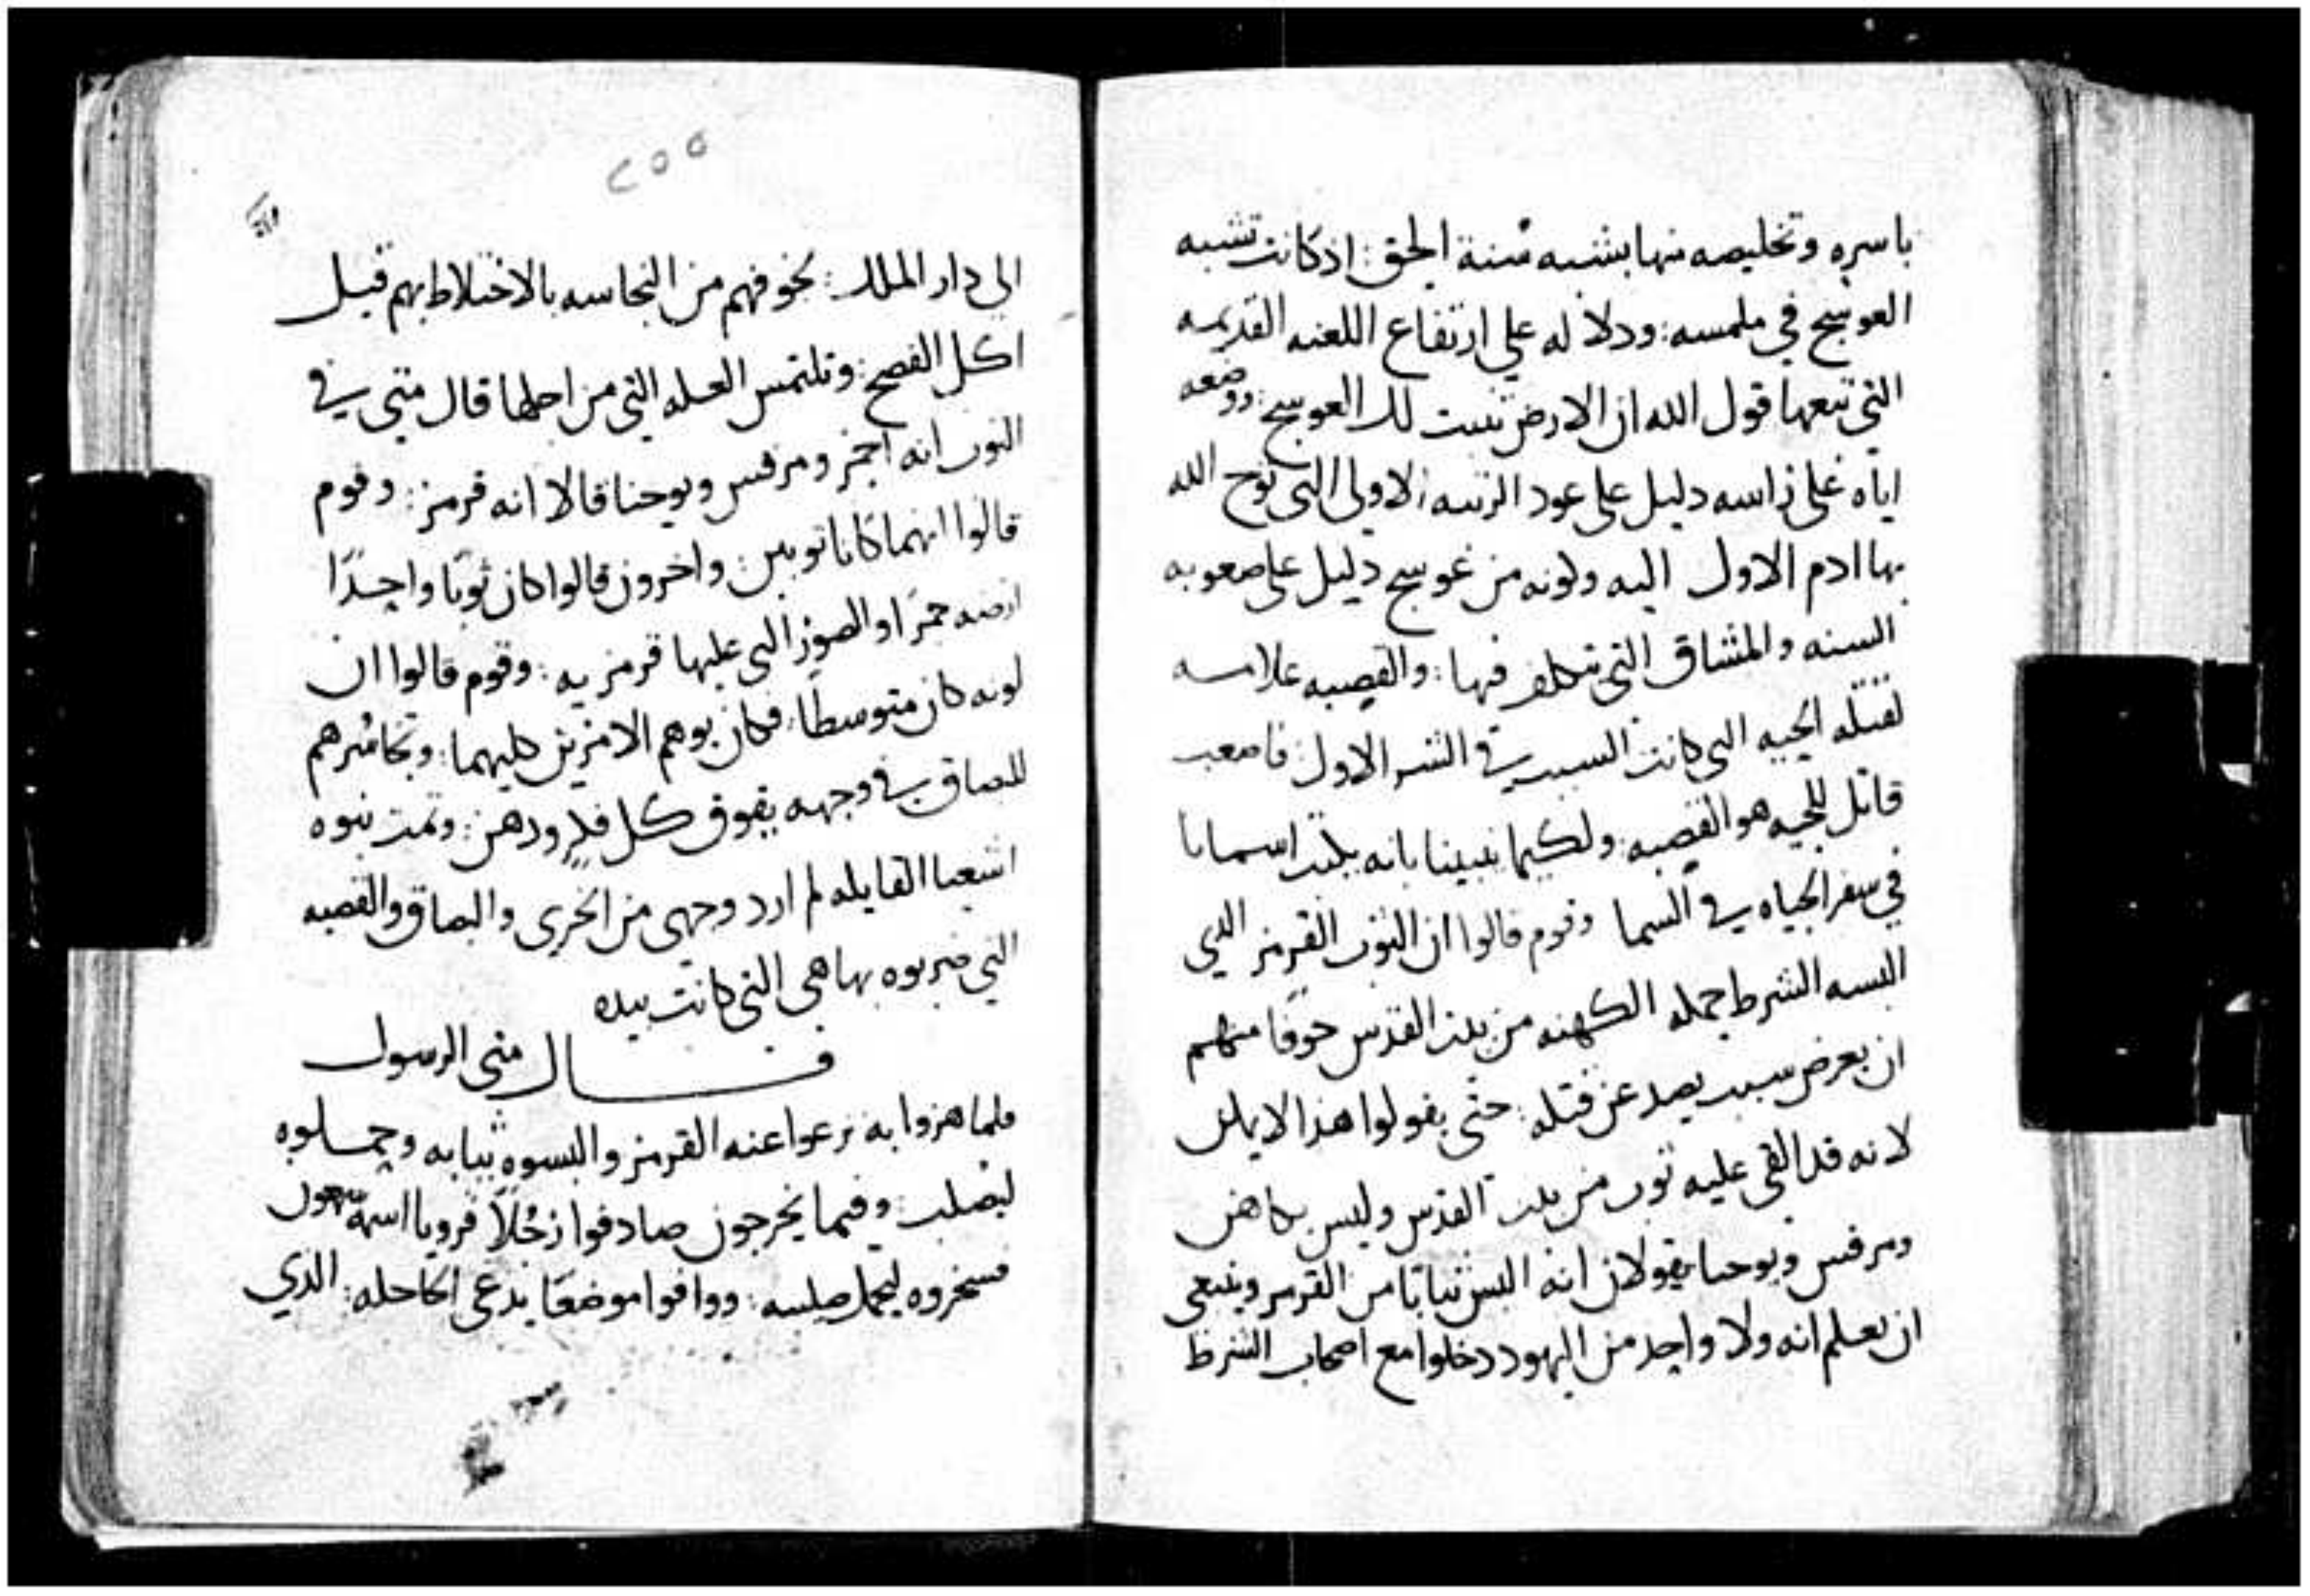 باسره وتخليصه منها بشبه سنة الحق: اذ كانت تشبه
العوسج في ملمسه: ودلاله علي ارتفاع اللعنه القديمه
التي تبعها قول الله ان الارض تنبت لك العوسج: ووضعه
اياه على راسه دليل على عود الرتبه الاولى التي توج الله
بها ادم الاول اليه وكونه من عوسج دليل على صعوبه
السنه والمشاق التي تتكلف فيها: والقصبه علامه
لقتله الحيه التي كانت السبب في الشر الاول: فاصعب
قاتل للحيه هو القصبه: ولكيما يبينا بانه يكتب اسمانا
في سفر الحياه في السما وقوم قالوا ان الثوب القرمز الذي
البسه الشرط حمله الكهنه من بيت القدس خوفا منهم
ان يعرض سبب يصد عن قتله: حتى يقولوا هذا لا يقتل
لانه قد القي عليه ثوب من بيت القدس وليس بكاهن
ومرقس ويوحنا يقولان انه البس ثيابا من القرمز وينبغي
ان يعلم انه ولا واحد من اليهود دخلوا مع اصحاب الشرط
٢٥٥
الي دار الملك: لخوفهم من النجاسه بالاختلاط بهم قبل
اكل الفصح: وتلتمس العله التي من اجلها قال متى في
الثوب انه احمر ومرقس ويوحنا قالا انه قرمز: وقوم
قالوا انهما كانا ثوبين: واخرون قالوا كان ثوبا واحدا
ارضه حمرا والصور التي عليها قرمزيه: وقوم قالوا ان
لونه كان متوسطا: فكان يوهم الامرين كليهما: وتجاسرهم
للبصاق في وجهه يفوق كل فكر وذهن: وتمت نبوه
اشعيا القايله لم ارد وجهي من الخزي والبصاق والقصبه
التي ضربوه بها هي التي كانت بيده
قال متى الرسول
فلما هزوا به نزعوا عنه القرمز والبسوه ثيابه وحملوه
ليصلب: وفيما يخرجون صادفوا رجلا قرويا اسمه سمعون
فسخروه ليحمل صليبه: ووافوا موضعا يدعى الجاجله: الذي